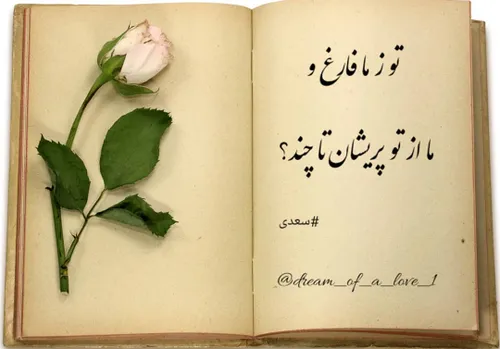 تو ز ما فارغ و
ما از تو پریشان تا چند؟
#سعدی
@dream_of_a_love_1